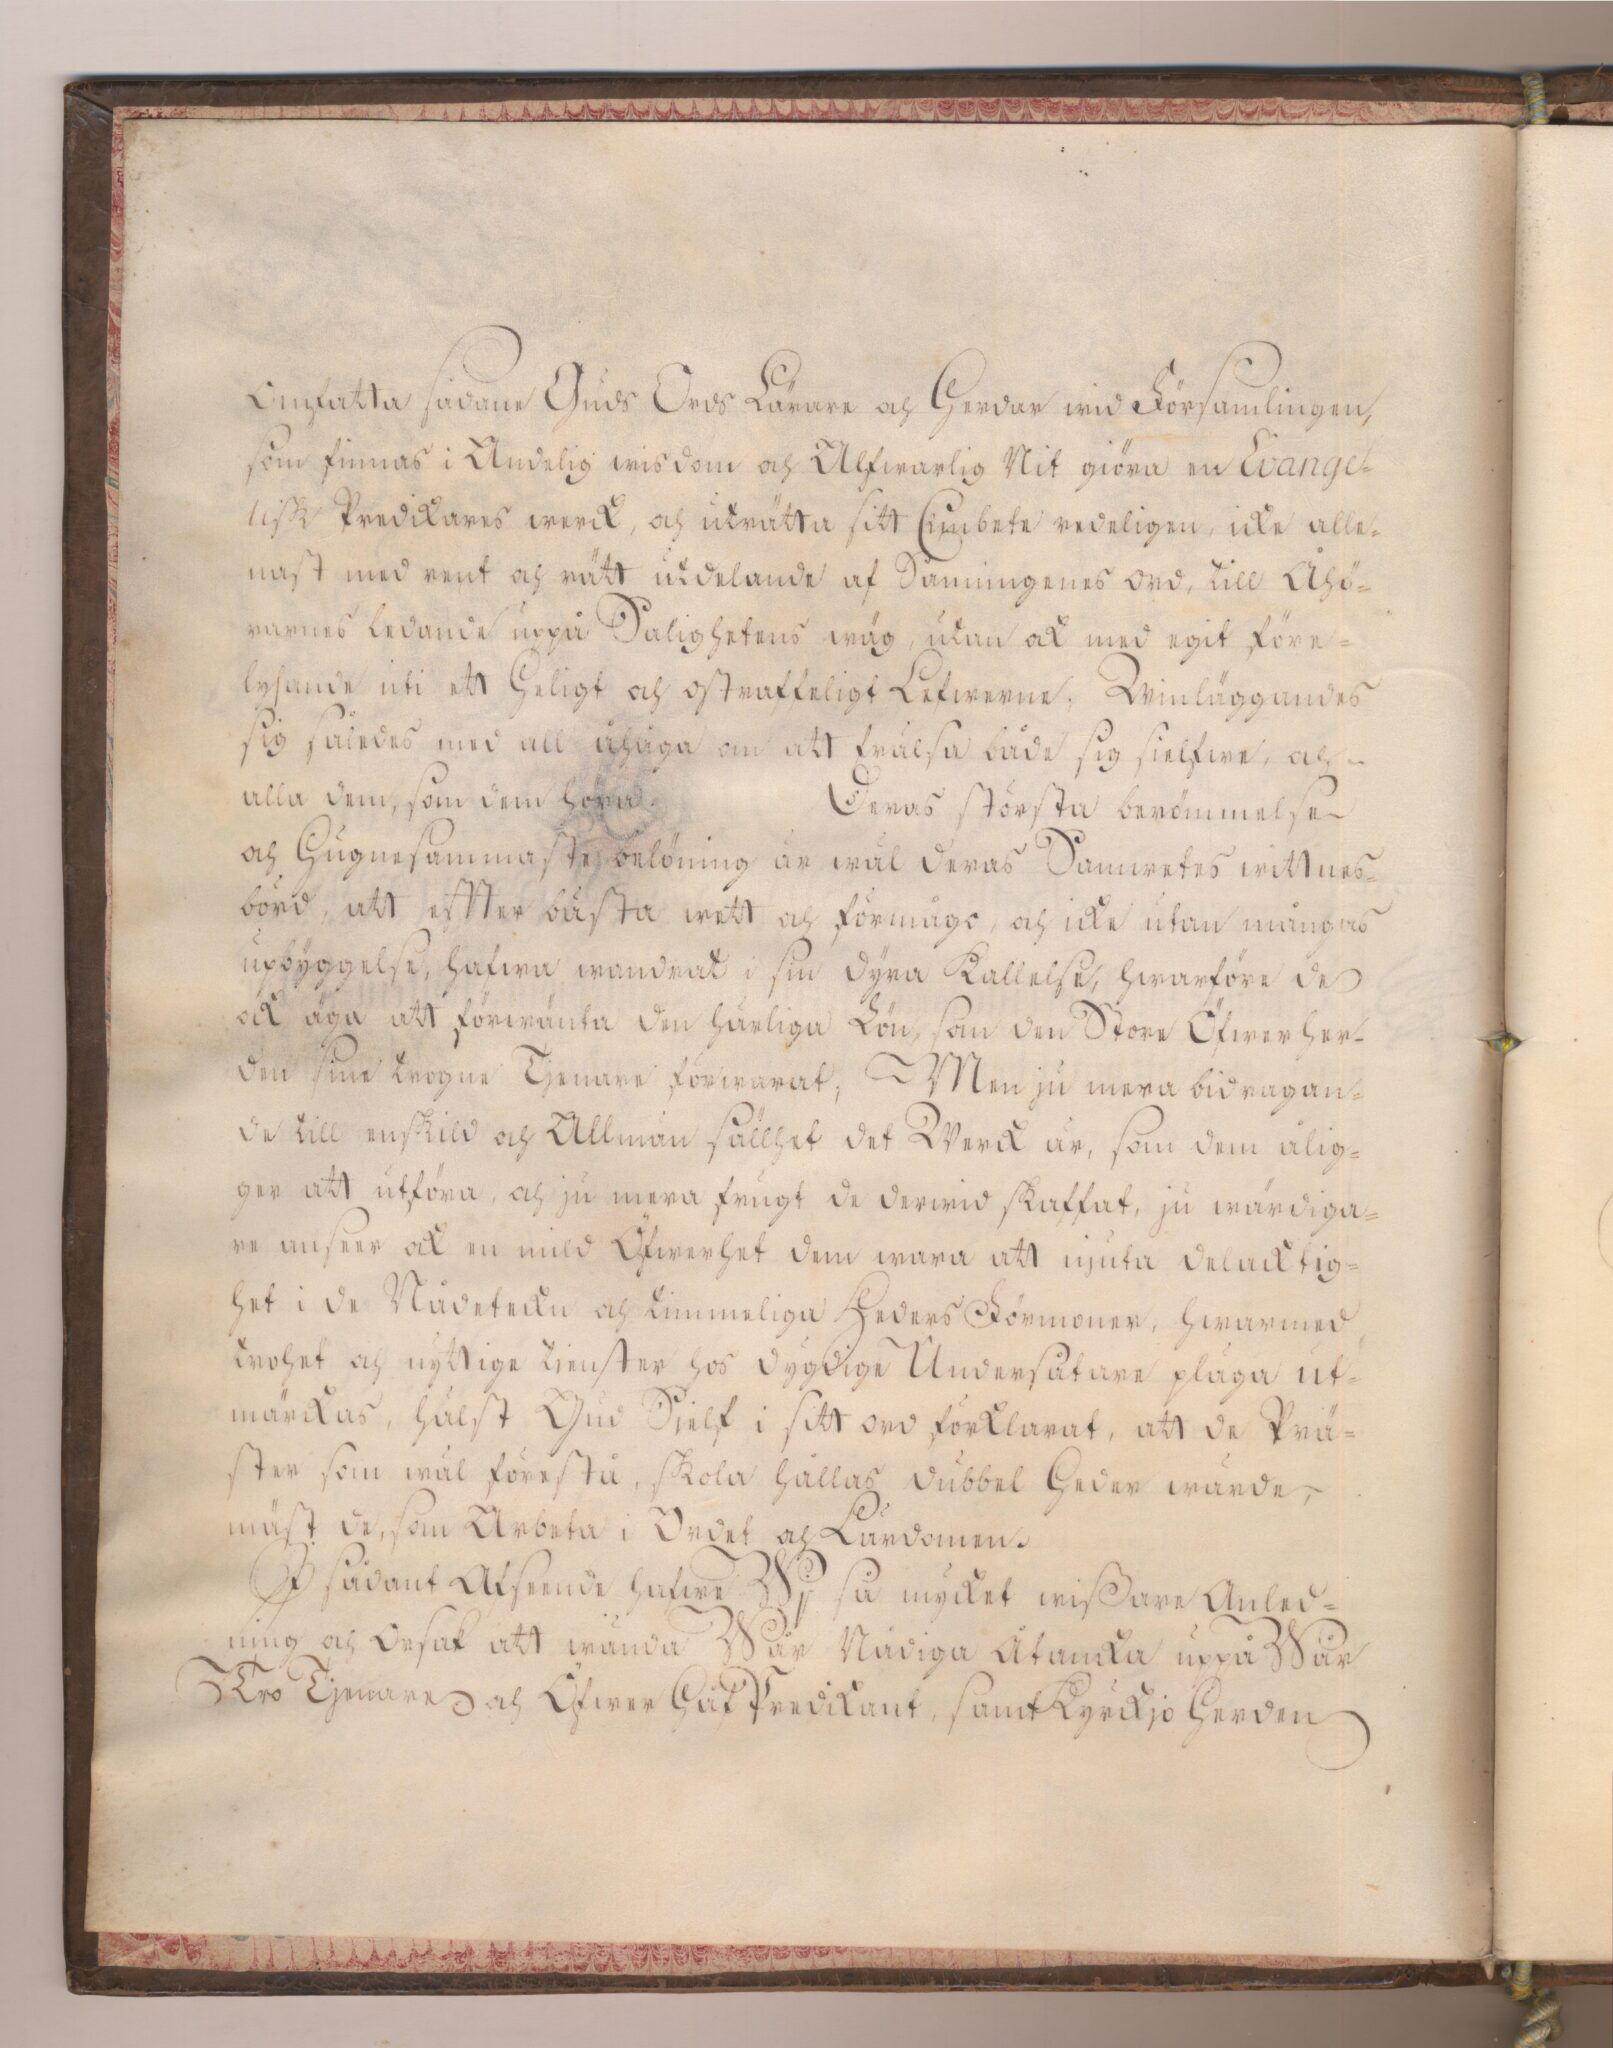 omfatta sådane Guds Ords Lärare och Herdar wid Församlingen,
som finnas i Andelig wisdom och Alfwarlig Nit giöra en Evange-
lisk Predikares werck, och uträtta sitt Embete redeligen, icke alle-
nast med rent och rätt utdelande af Sanningenes ord, till Åhö-
rarnes ledande uppå Salighetens wäg, utan ock med egit före-
lysande uti ett Heligt och ostraffeligt Lefwerne; Winläggandes
sig således med all åhåga om att frälsa både sig sielfwe, och
alla dem, som dem höra. Deras största berömmelse
och Hugnesammaste belöning är wäl deras Samwetes wittnes-
börd, att effter bästa wett och förmågo, och icke utan mångas
upbyggelse, hafwa wandrat i sin dyra Kallelse, hwarföre de
ock äga att förwänta den härliga Lön, som den Store Öfwerher-
den sine trogne Tjenare förwarat; Men ju mera bidragan-
de till enskild och Allmän sällhet det Werck är, som dem ålig-
ger att utföra, och ju mera frugt de derwid skaffat, ju wärdiga-
re anseer ock en mild Öfwerhet dem wara att njuta delacktig-
het i de Nådetekn och timmeliga Heders Förmoner, hwarmed
trohet och nyttige tienster hos dygdige Undersåtare pläga ut-
märckas, hälst Gud Sielf i sitt ord förklarat, att de Prä-
ster som wäl förestå, skola hållas dubbel Heder wärde,
mäst de, som Arbeta i Ordet och Lärdomen.
I sådant Afseende hafwe Wij så mycket wißare Anled-
ning och Orsak att wända Wår Nådiga Åtancka uppå Wår
Tro Tjenare och Öfwer Håf Predikant, samt Kyrckjo Herden